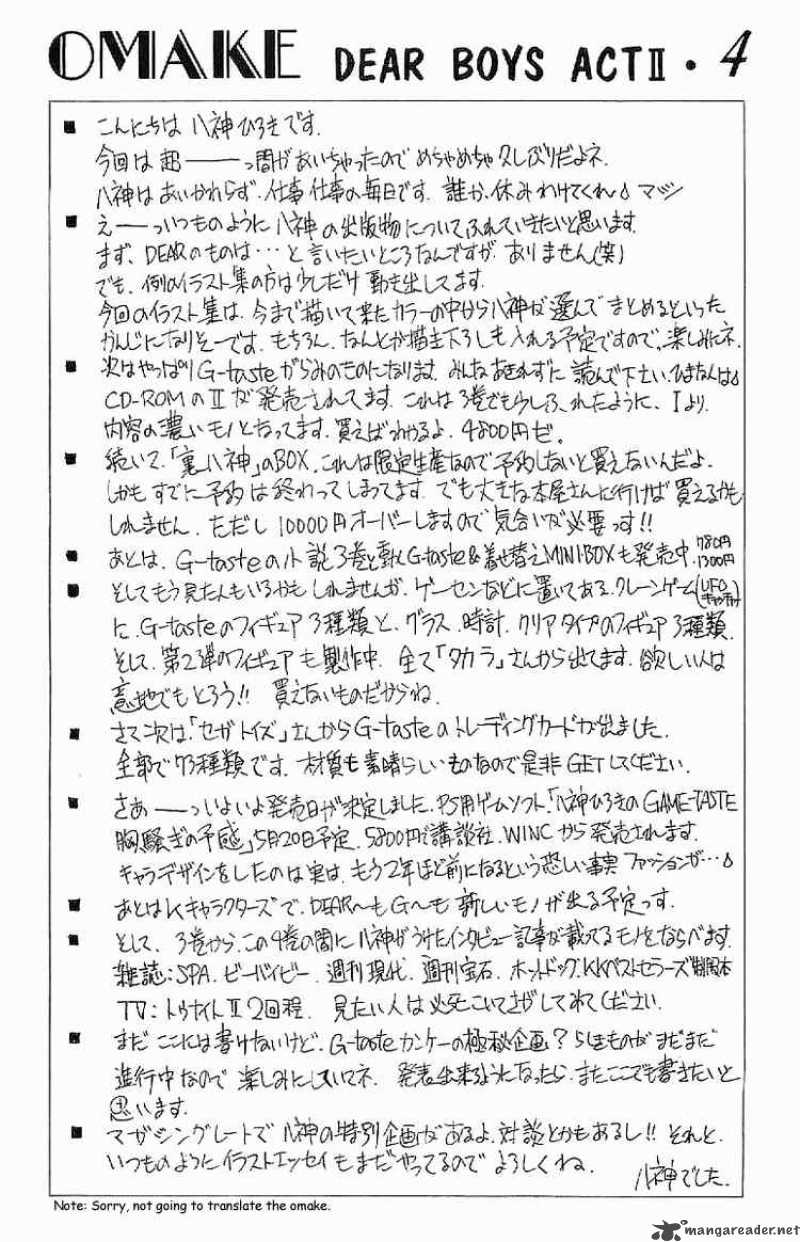 OMAKE DEAR BOYS ACTⅡ・4
■ こんにちは 八神ひろきです.
今回は超――っ間があいちゃったので めちゃめちゃ久しぶりだよネ.
八神はあいかわらず、仕事仕事の毎日です. 誰か、休みわけてくれ〜♪ マジ
■ え――っいつものように八神の出版物についてふれていきたいと思います.
まず、DEARのものは…と言いたいところなんですが、ありません(笑)
でも、例のイラスト集の方は少しだけ動き出してます.
今回のイラスト集は、今まで描いて来たカラーの中から八神が選んでまとめるといった
かんじになりそーです. もちろん、なんとか描き下ろしも入れる予定ですので、楽しみにネ.
■ 次はやっぱりG-tasteがらみのものになります. みんなあきれずに読んで下さい.
CD-ROMのⅡが発売されてます. これは3巻でも少しふれたように、Ⅰより
内容の濃いモノとなってます. 買えばわかるよ. 4800円ゼ。
■ 続いて、「裏八神」のBOX. これは限定生産なので予約しないと買えないんだよ.
しかもすでに予約は終わってしまってます. でも大きな本屋さんに行けば買えるかも
しれません. ただし10000円オーバーしますので気合いが必要っす!!
■ あとは、G-tasteの小説3巻と動くG-taste&着せ替えMINI・BOXも発売中. 780円 1300円
■ そしてもう見た人もいるかもしれませんが、ゲーセンなどに置いてある、クレーンゲーム(UFOキャッチャー)
に、G-tasteのフィギュア3種類と、グラス、時計、クリアタイプのフィギュア3種類.
そして、第2弾のフィギュアも製作中. 全て「タカラ」さんから出てます. 欲しい人は
意地でもとろう!! 買えないものだからね.
■ さて次は、「セガトイズ」さんからG-tasteのトレーディングカードが出ました.
全部で73種類です. 材質も素晴らしいものなので是非GETしてください.
■ さあ――っいよいよ発売日が決定しました. PS用ゲームソフト.「八神ひろきのGAME-TASTE
胸騒ぎの予感」5月20日予定. 5800円で講談社. WINCから発売されます.
キャラデザインをしたのは実は、もう2年ほど前になるという恐しい事実 ファッションが…♪
■ あとはKキャラクターズで、DEAR〜もG〜も新しいモノが出る予定っす.
■ そして、3巻から、この4巻の間に八神がうけたインタビュー記事が載ってるモノをならべます.
雑誌:SPA. ビーバイビー. 週刊現代. 週刊宝石. ホットドッグ. KKベストセラーズ
TV:トゥナイトⅡ 2回程. 見たい人は必死こいてさがしてみてください.
■ まだここには書けないけど、G-tasteカンケーの極秘企画?らしきものがまだまだ
進行中なので楽しみにしていてネ. 発表出来るようになったら、またここでも書きたいと
思います.
■ マガジングレートで八神の特別企画があるよ. 対談とかもあるし!! それと、
いつものようにイラストエッセイもまだやってるのでよろしくね.
八神でした.
Note: Sorry, not going to translate the omake.
mangareader.net